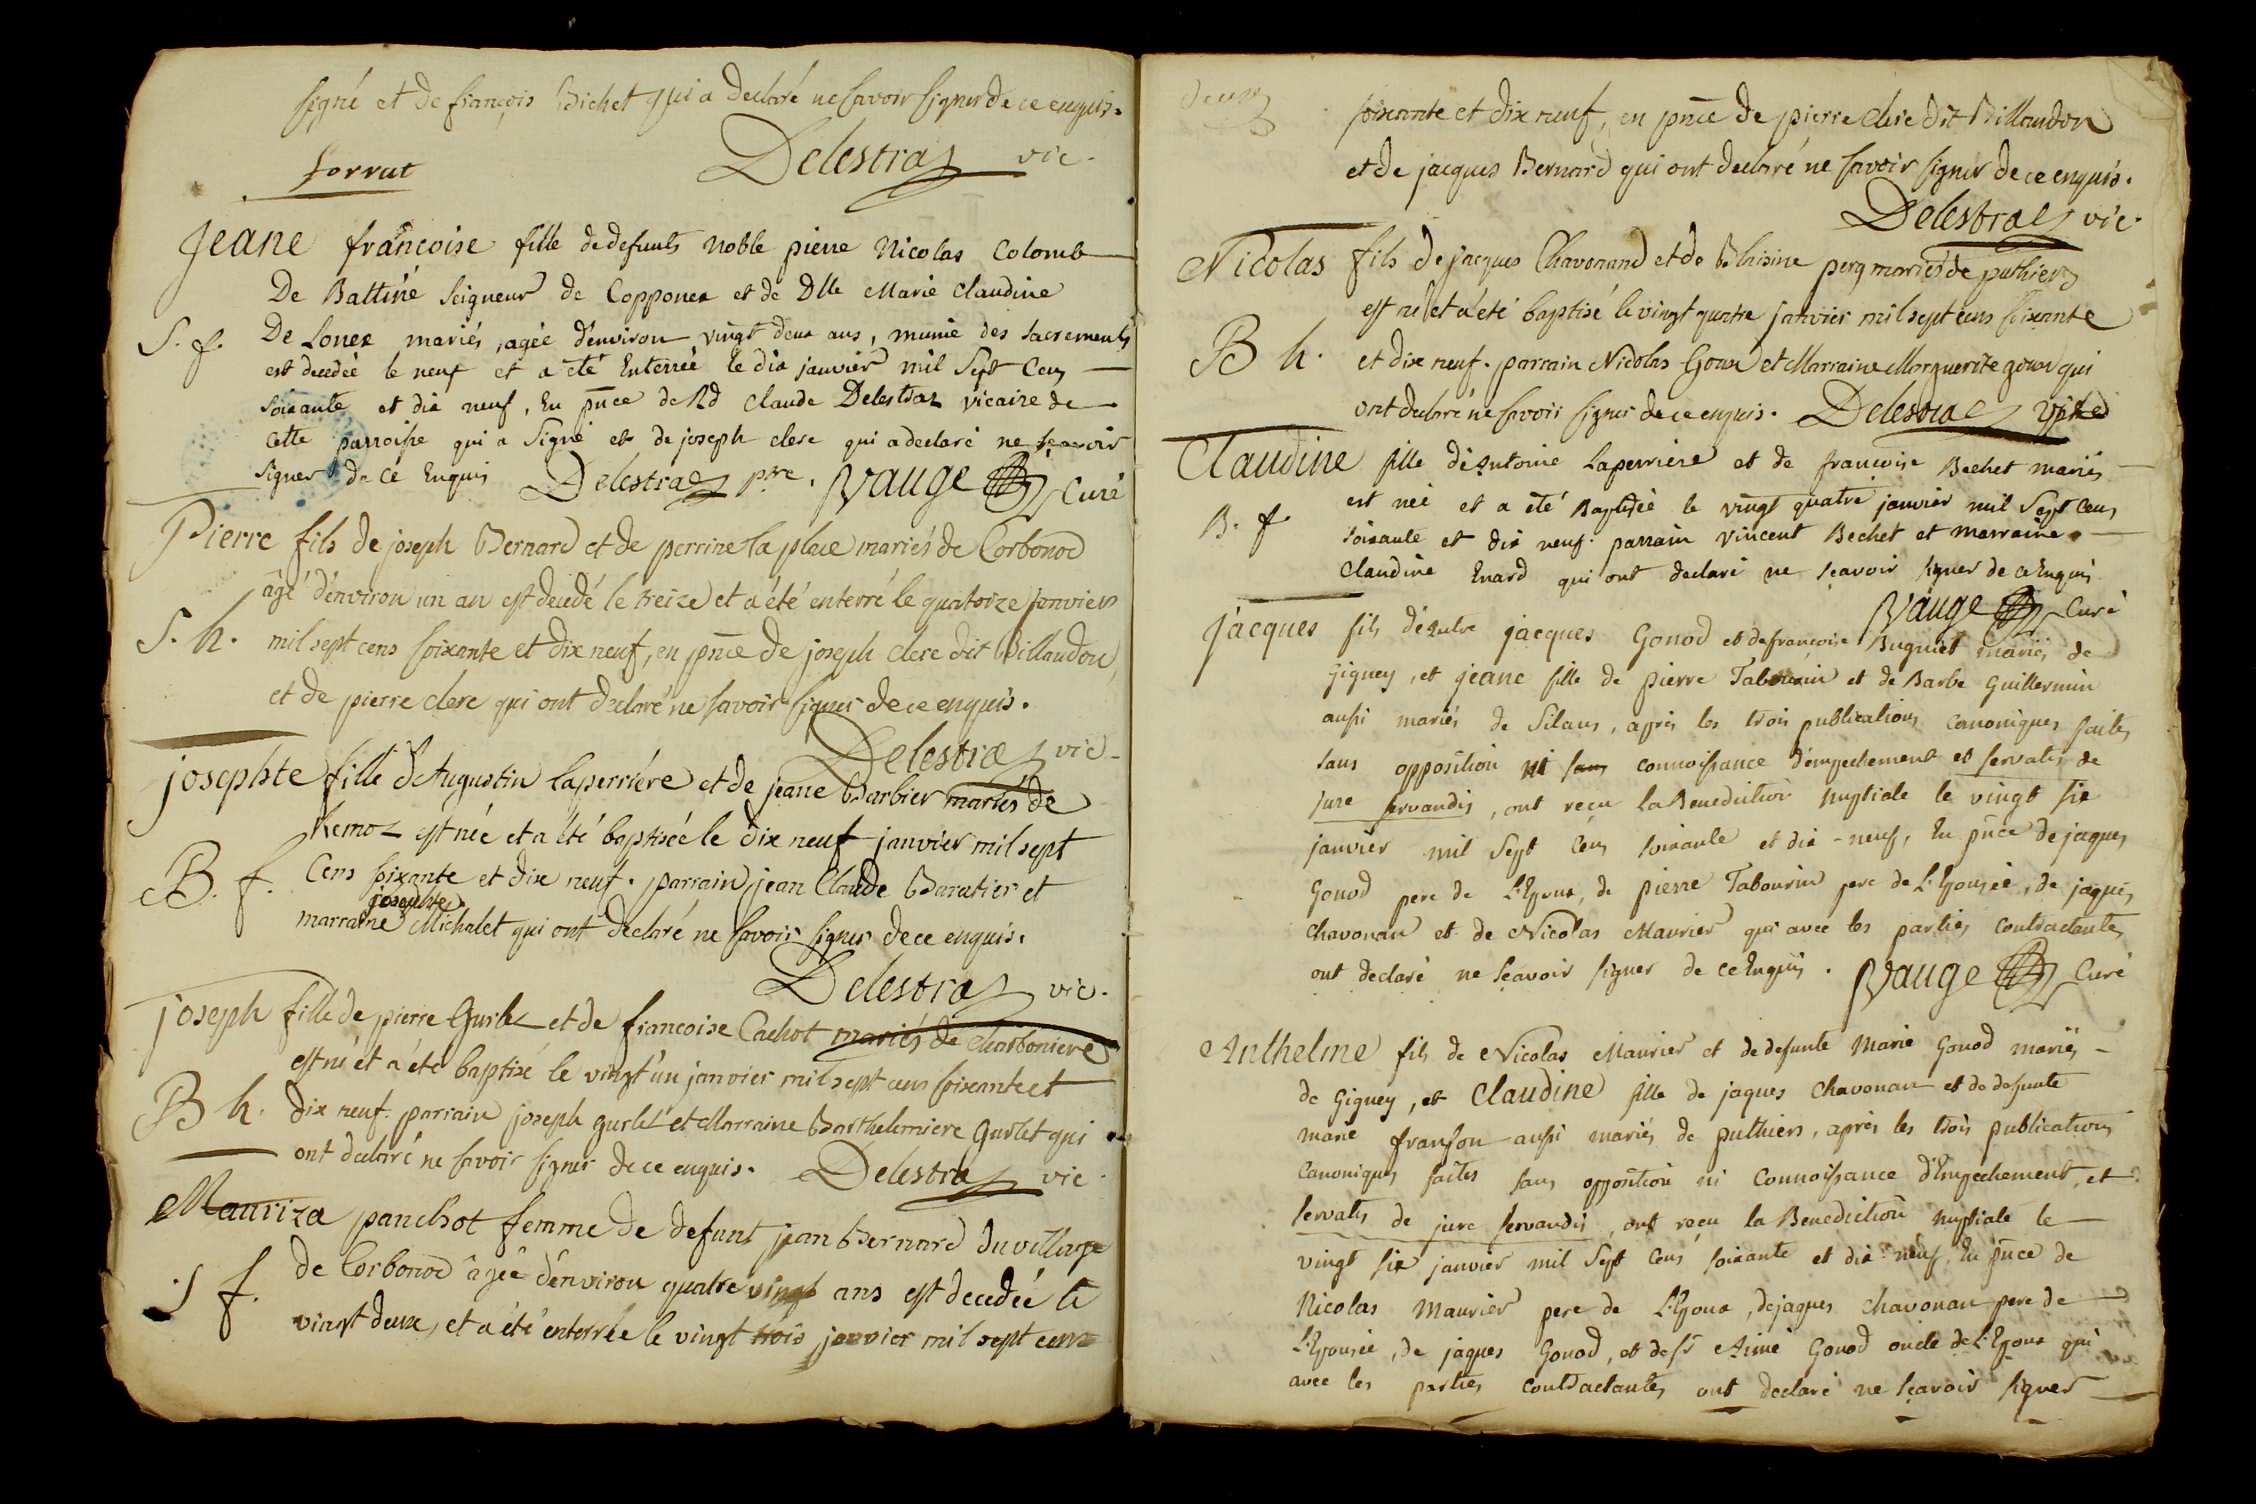 signé et de françois Bichet qui a declaré ne savoir signer de ce enquis.
forrat Delestraz vic.
Jeane françoise fille de defunts noble pierre Nicolas Colomb
De Battiné Seigneur de Copponex et de Dlle Marie Claudine
S. f. De Lonex mariés, agée d'environ vingt deux ans, munie des sacrements
est decedée le neuf et a eté Enterrée le dix janvier mil Sept Cens
soixante et dix neuf, En pnce de Rd Claude Delestraz vicaire de
cette parroisse qui a Signé et de joseph clerc qui a declaré ne sçavoir
signer de ce Enquis Delestraz ptre. Vauge Curé
Pierre fils de joseph Bernard et de perrine la place mariés de Corbonod
âgé d'environ un an est decedé le treize et a été enterré le quatorze janvier
S. h. mil sept cens soixante et dix neuf, en pnce de joseph clerc dit Billaudon
et de pierre clerc qui ont declaré ne savoir signer de ce enquis.
Delestraz vic.
josephte fille d'Augustin laperriére et de jeane Barbier mariés de
Remoz est née et a été baptisée le dix neuf janvier mil sept
B. f. Cens soixante et dix neuf. parrain jean Claude Baratier et
josephte
marraine Michalet qui ont declaré ne savoir signer de ce enquis.
Delestraz vic.
joseph fille de pierre Gurlet et de francoise Cachot mariés de Charboniere
est né et a été baptisé le vingt un janvier mil sept cens soixante et
B h. dix neuf. parrain joseph gurlet et Marraine Barthelemiere Gurlet qui
ont declaré ne savoir signer de ce enquis. Delestraz vic.
Mauriza panchot femme de defunt jean Bernard du village
S f. de Corbonod âgée d'environ quatre vingt ans est decedée le
vingt deux, et a été enterrée le vingt trois janvier mil sept cens
deux
soixante et dix neuf, en pnce de pierre clerc dit Billaudon
et de jacques Bernard qui ont declaré ne savoir signer de ce enquis.
Delestraz vic.
Nicolas fils de jacques Chavonand et de Blaisine perq mariés de puthier
est né et a été baptisé le vingt quatre janvier mil sept cens soixante
B h. et dix neuf. parrain Nicolas Goux et Marraine Marguerite goux qui
ont declaré ne savoir signer de ce enquis. Delestraz
Claudine fille d'Antoine Laperriere et de francoise Bechet mariés
est née et a eté Baptisée le vingt quatre janvier mil Sept Cens
B. f. soixante et dix neuf. parrain Vincent Bechet et marraine
Claudine Enard qui ont declaré ne sçavoir signer de ce Enquis.
Vauge Curé
jacques fils d'autre jacques Gonod et de francoise Buguet mariés de
Gigney, et jeane fille de pierre Tabourin et de Barbe Guillermin
aussi mariés de Silans, après les trois publications canoniques faites
sans opposition ni sans connoissance d'empechement et servatis de
jure servandis, ont reçu la Benediction nuptiale le vingt six
janvier mil Sept Cens soixante et dix-neuf, En pnce de jaques
Gonod pere de L'Epoux, de pierre Tabourin pere de L'Epousée, de jaques
chavonan et de Nicolas Maurier qui avec les parties contractantes
ont declaré ne sçavoir signer de ce Enquis. Vauge Curé
Anthelme fils de Nicolas Maurier et de defunte Marie Gonod mariés
de Gigney, et Claudine fille de jaques Chavonan et de defunte
marie franson aussi mariés de puthiers, après les trois publications
Canoniques faites sans opposition ni Connoissance d'Empechement, et
servatis de jure servandis, ont reçu la Benediction nuptiale le
vingt six janvier mil Sept Cens soixante et dix neuf, En pnce de
Nicolas Maurier pere de L'Epoux, de jaques chavonan pere de
L'Epousée, de jaques Gonod, et de sr Aimé Gonod oncle de L'Epoux qui
avec les parties contractantes ont declaré ne sçavoir signer